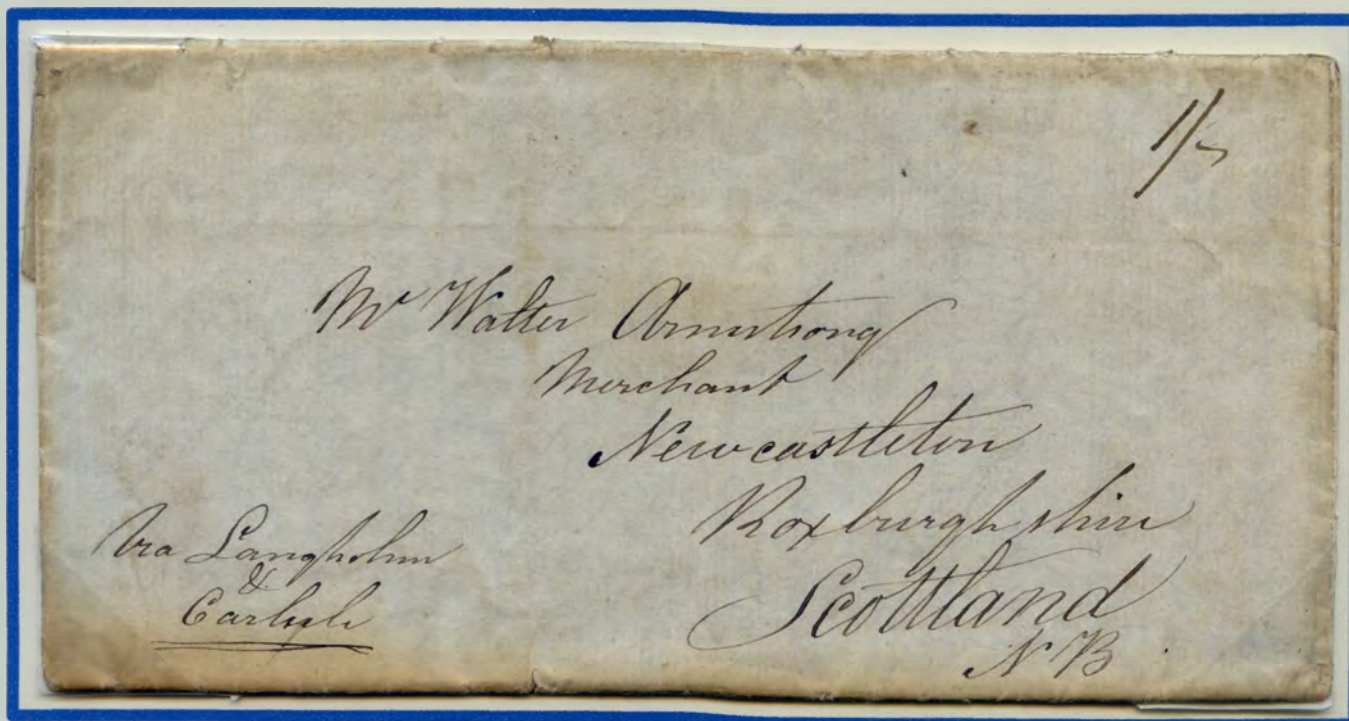 1/-
Mr Walter Armstrong
Merchant
Newcastleton
Roxburghshire
Scottland
N B
Via Langholm
&
Carlisle